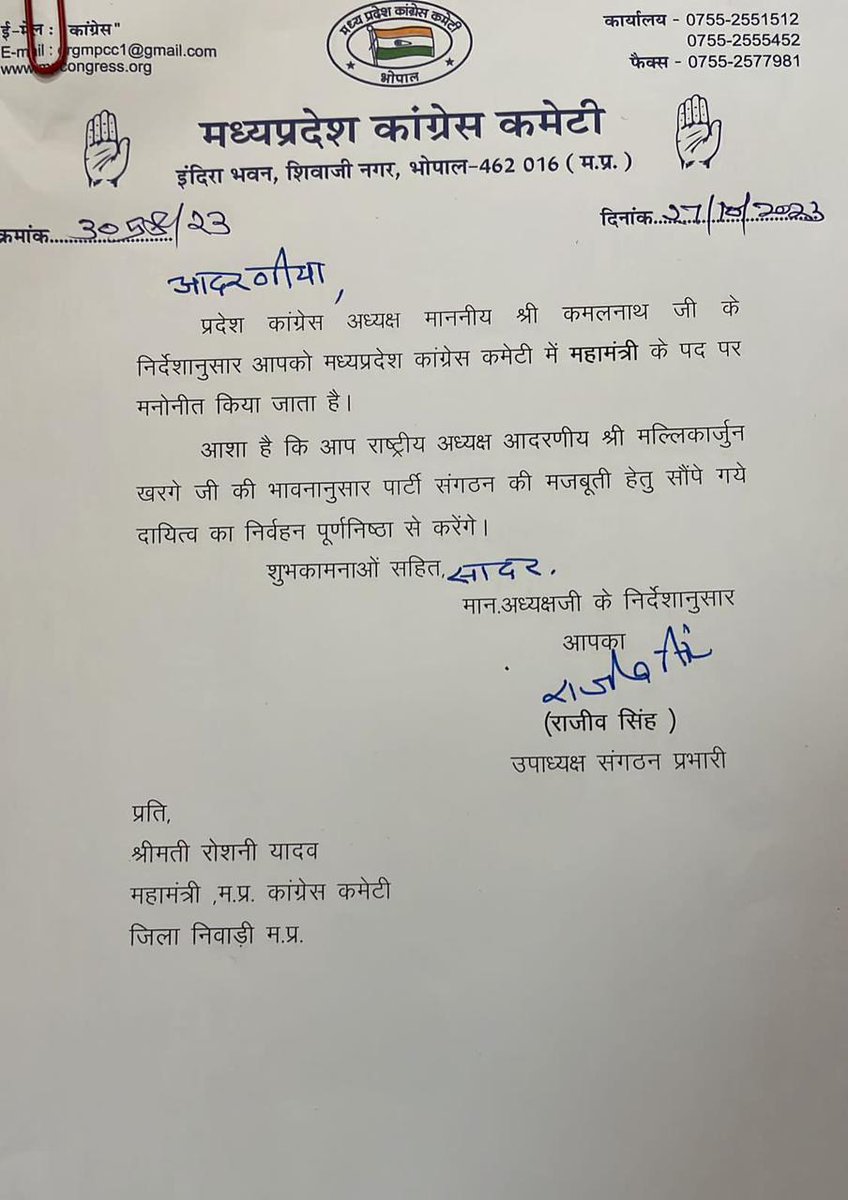 ई-मेल : कांग्रेस"
E-mail : orgmpcc1@gmail.com
www.mpcongress.org
मध्य प्रदेश कांग्रेस कमेटी
भोपाल
कार्यालय - 0755-2551512
0755-2555452
फैक्स - 0755-2577981
मध्यप्रदेश कांग्रेस कमेटी
इंदिरा भवन, शिवाजी नगर, भोपाल-462 016 ( म.प्र. )
क्रमांक 3058/23
दिनांक 27/10/2023
आदरणीया,
प्रदेश कांग्रेस अध्यक्ष माननीय श्री कमलनाथ जी के
निर्देशानुसार आपको मध्यप्रदेश कांग्रेस कमेटी में महामंत्री के पद पर
मनोनीत किया जाता है।
आशा है कि आप राष्ट्रीय अध्यक्ष आदरणीय श्री मल्लिकार्जुन
खरगे जी की भावनानुसार पार्टी संगठन की मजबूती हेतु सौंपे गये
दायित्व का निर्वहन पूर्णनिष्ठा से करेंगे।
शुभकामनाओं सहित, सादर.
मान.अध्यक्षजी के निर्देशानुसार
आपका
(राजीव सिंह )
उपाध्यक्ष संगठन प्रभारी
प्रति,
श्रीमती रोशनी यादव
महामंत्री ,म.प्र. कांग्रेस कमेटी
जिला निवाड़ी म.प्र.